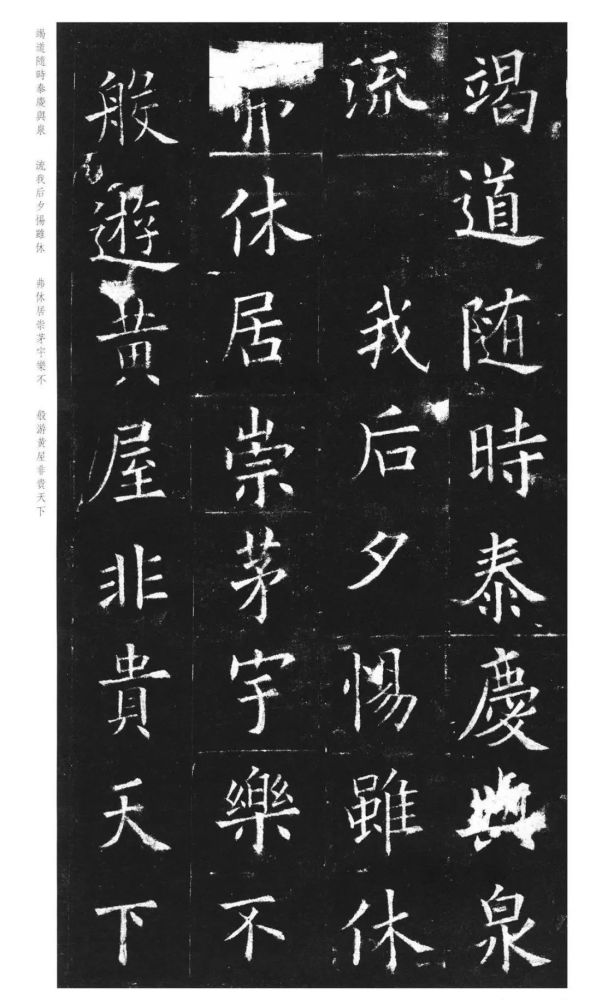 竭道随時泰慶與泉
流我后夕惕雖休
弗休居崇茅宇樂不
般遊黄屋非貴天下
竭道随時泰慶與泉 流我后夕惕雖休 弗休居崇茅宇樂不 般游黄屋非貴天下